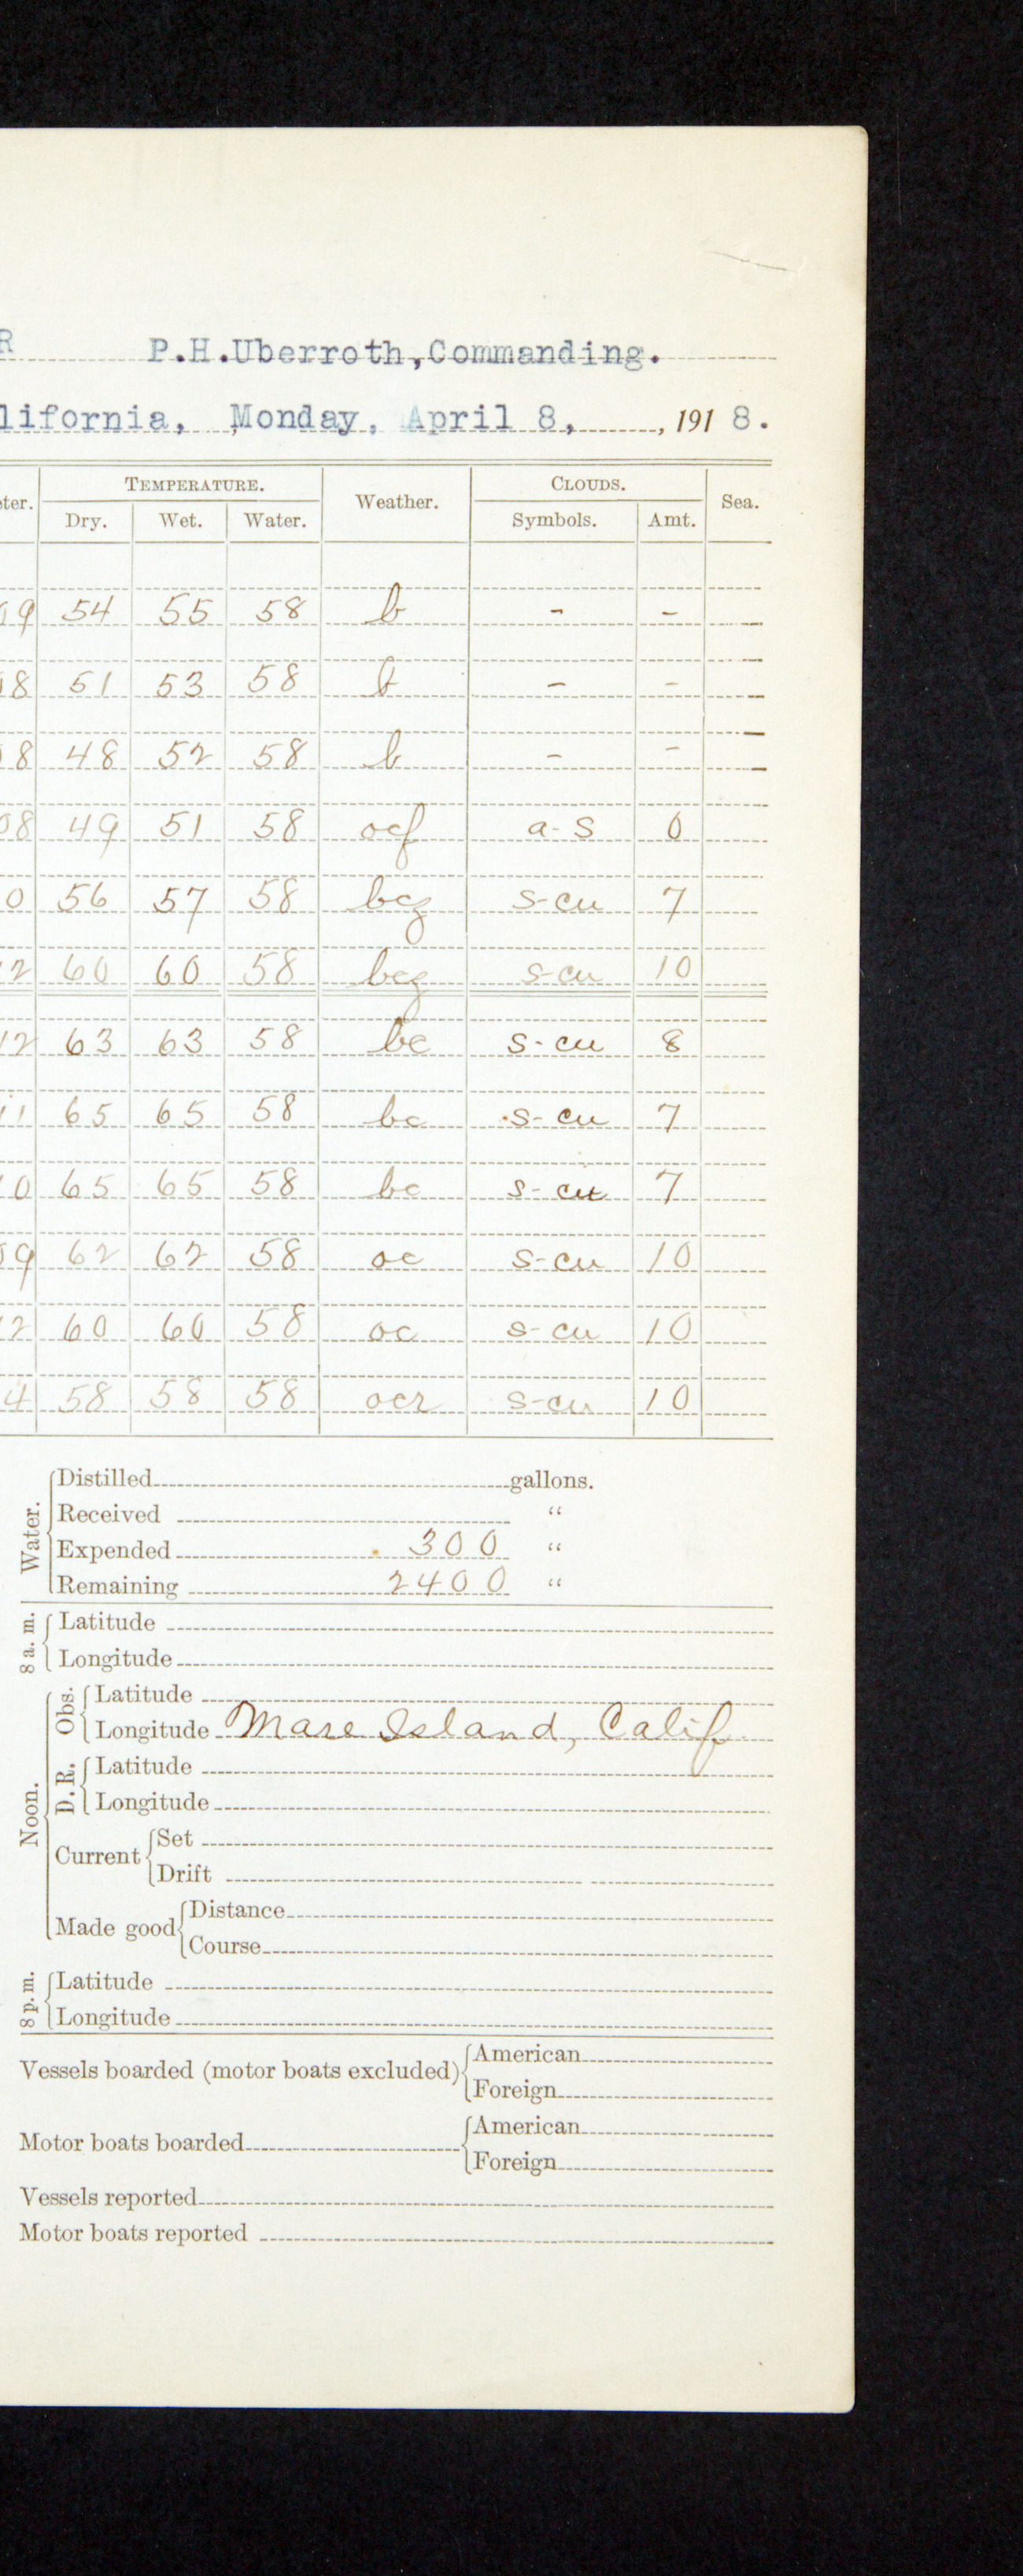 R P.H.Uberroth,Commanding.
lifornia, Monday, April 8, , 191 8.
ter. TEMPERATURE. Weather. CLOUDS. Sea.
Dry. Wet. Water. Symbols. Amt.
9 54 55 58 b - - -
8 51 53 58 b - - -
8 48 52 58 b - - -
08 49 51 58 ocf a-s 0
0 56 57 58 bcz s-cu 7
12 60 60 58 bcz s-cu 10
12 63 63 58 bc s-cu 8
11 65 65 58 bc s-cu 7
10 65 65 58 bc s-cu 7
09 62 62 58 oc s-cu 10
12 60 60 58 oc s-cu 10
4 58 58 58 ocr s-cu 10
Water.
Distilled gallons.
Received “
Expended 300 “
Remaining 2400 “
8 a. m.
Latitude
Longitude
Noon.
Obs.
Latitude
Longitude Mare Island, Calif.
D. R.
Latitude
Longitude
Current
Set
Drift
Made good
Distance
Course
8 p. m.
Latitude
Longitude
Vessels boarded (motor boats excluded)
American
Foreign
Motor boats boarded
American
Foreign
Vessels reported
Motor boats reported